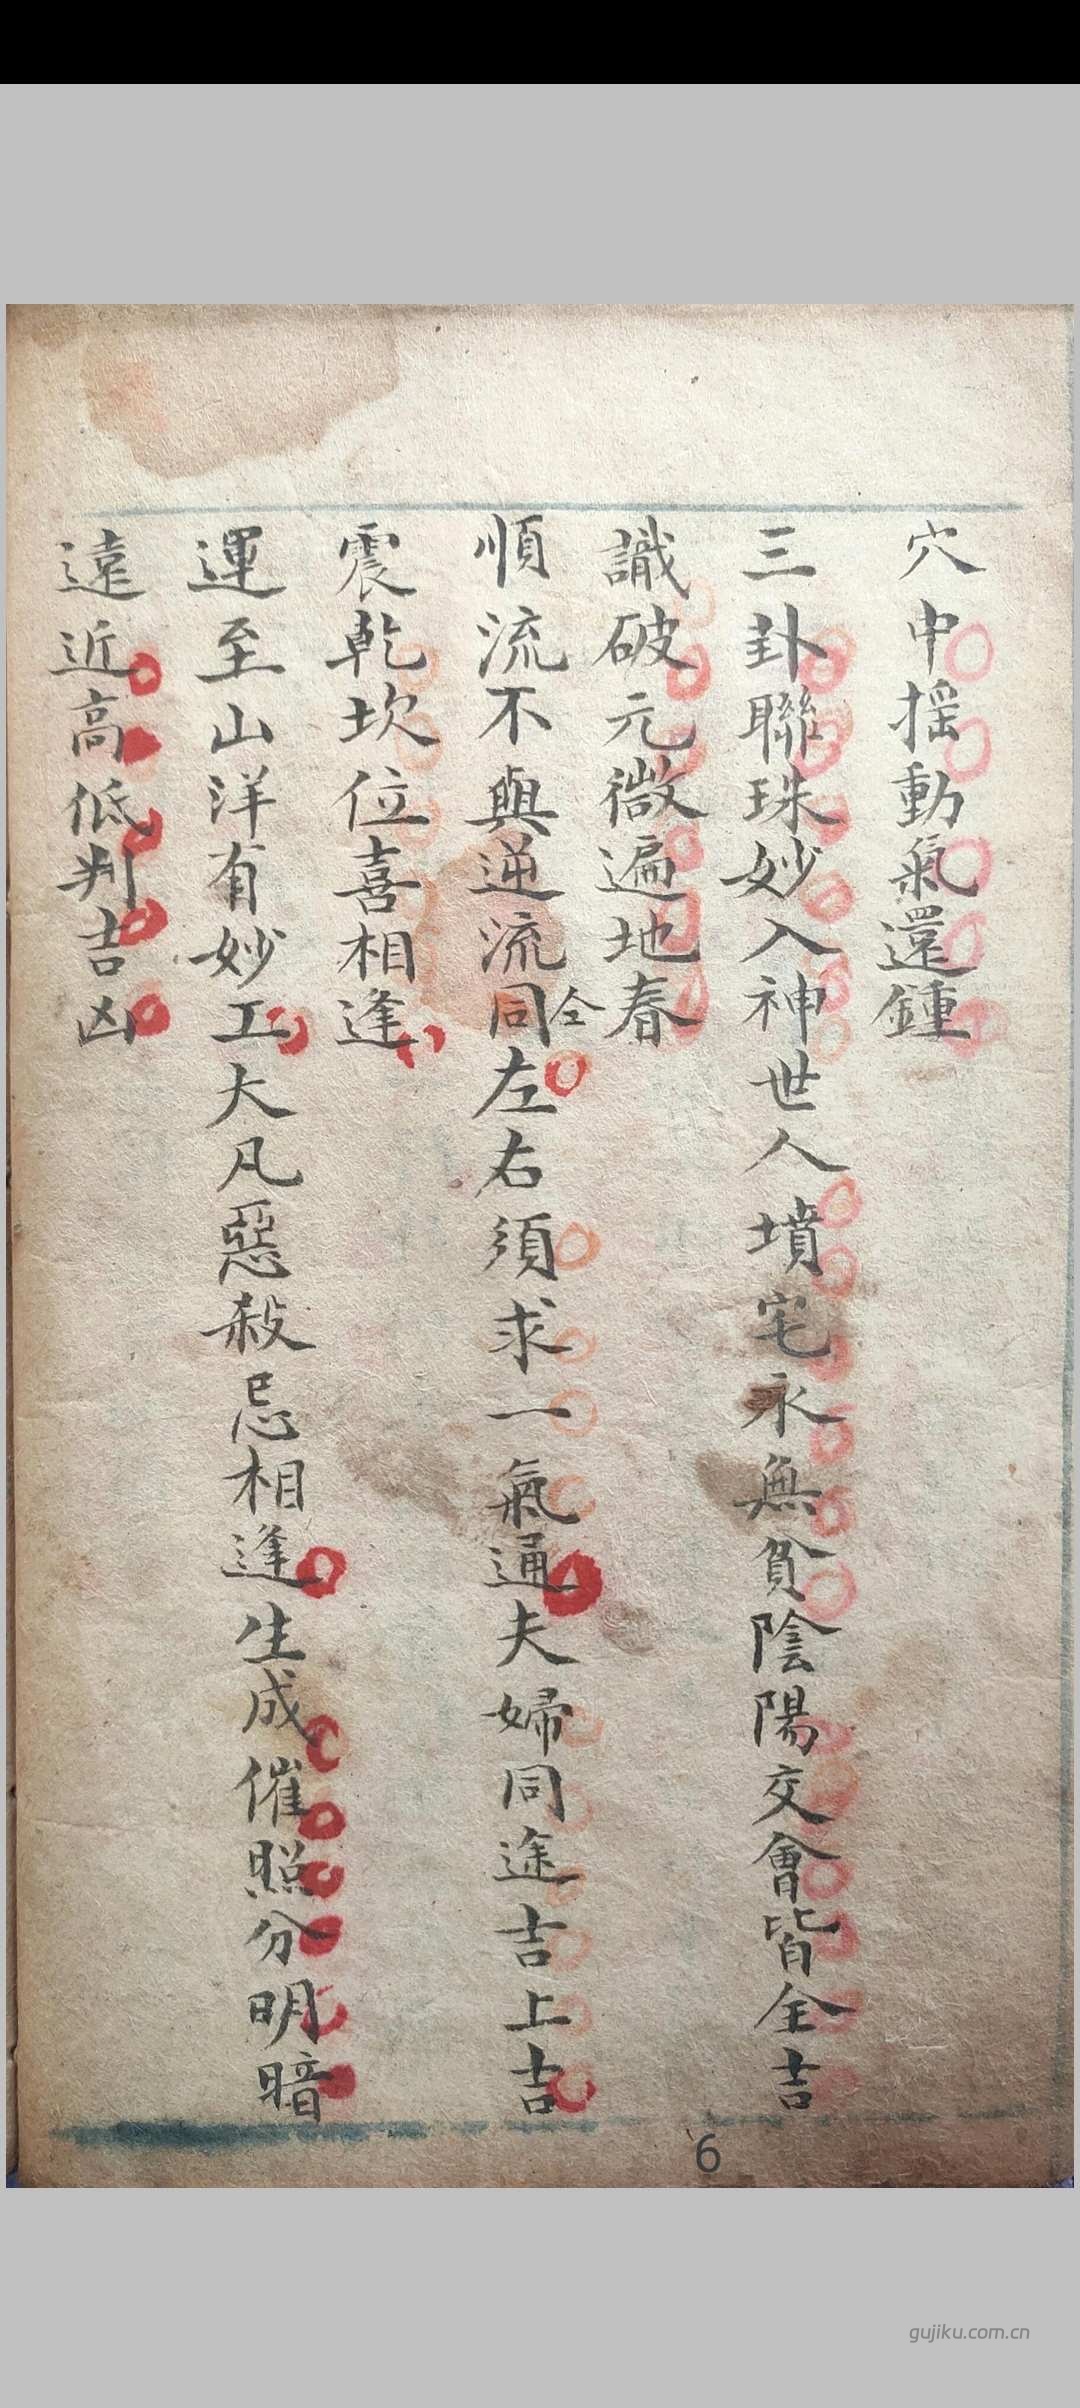 穴中搖動氣還鍾
三卦聯珠妙入神世人墳宅永無貧陰陽交會皆全吉
識破元微遍地春
順流不與逆流同仝左右須求一氣通夫婦同途吉上吉
震乾坎位喜相逢
運至山洋有妙工大凡惡殺忌相逢生成催照分明暗
遠近高低判吉凶
6
gujiku.com.cn